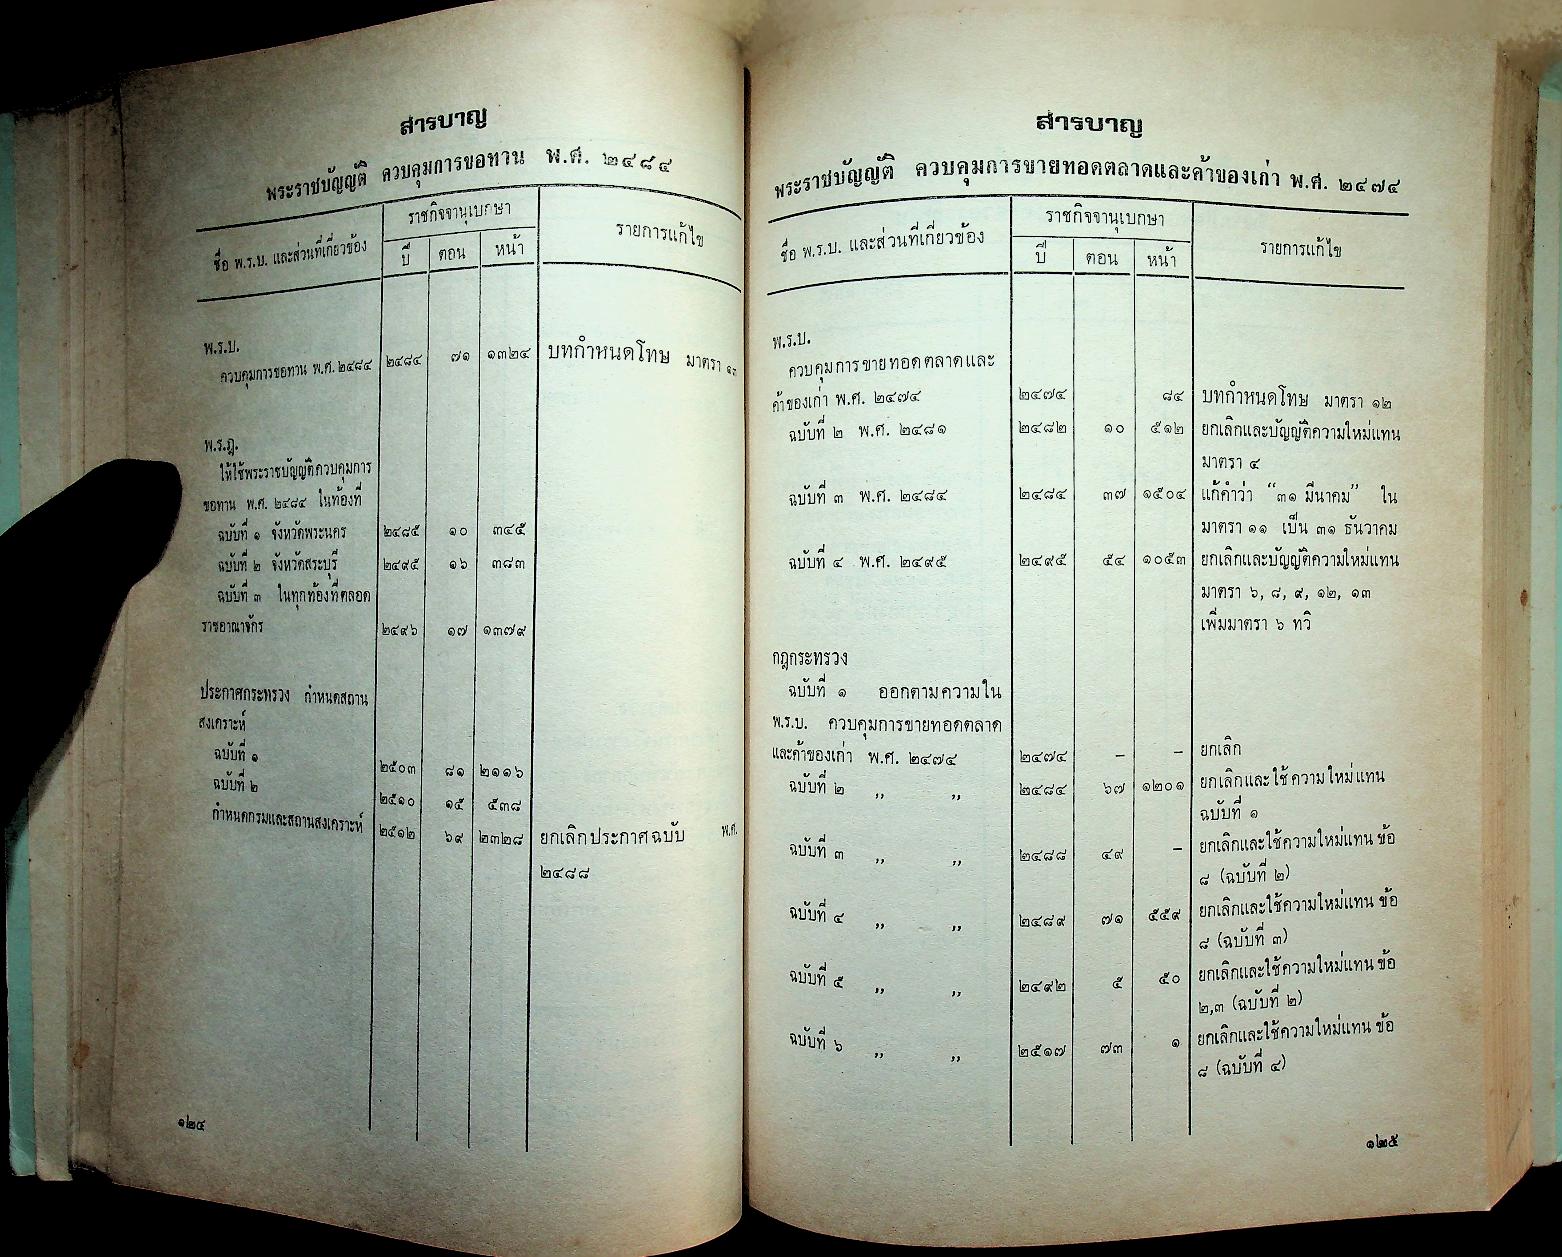 สารบาญ
พระราชบัญญัติ ควบคุมการขอทาน พ.ศ. ๒๔๘๔
ชื่อ พ.ร.บ. และส่วนที่เกี่ยวข้อง
ราชกิจจานุเบกษา
ปี ตอน หน้า
รายการแก้ไข
พ.ร.บ.
ควบคุมการขอทาน พ.ศ.๒๔๘๔ ๒๔๘๔ ๗๑ ๑๓๒๔ บทกำหนดโทษ มาตรา ๑๓
พ.ร.ฎ.
ให้ใช้พระราชบัญญัติควบคุมการ
ขอทาน พ.ศ. ๒๔๘๔ ในท้องที่
ฉบับที่ ๑ จังหวัดพระนคร ๒๔๘๕ ๑๐ ๓๔๕
ฉบับที่ ๒ จังหวัดสระบุรี ๒๔๙๕ ๑๖ ๓๘๓
ฉบับที่ ๓ ในทุกท้องที่ตลอด
ราชอาณาจักร ๒๔๙๖ ๑๗ ๑๓๗๙
ประกาศกระทรวง กำหนดสถาน
สงเคราะห์
ฉบับที่ ๑ ๒๕๐๓ ๘๑ ๒๑๑๖
ฉบับที่ ๒ ๒๕๑๐ ๑๕ ๕๓๘
กำหนดกรมและสถานสงเคราะห์ ๒๕๑๒ ๖๙ ๒๓๒๘ ยกเลิกประกาศฉบับ พ.ศ.
๒๔๘๘
๑๒๔
สารบาญ
พระราชบัญญัติ ควบคุมการขายทอดตลาดและค้าของเก่า พ.ศ. ๒๔๗๔
ชื่อ พ.ร.บ. และส่วนที่เกี่ยวข้อง
ราชกิจจานุเบกษา
ปี ตอน หน้า
รายการแก้ไข
พ.ร.บ.
ควบคุมการขายทอดตลาดและ
ค้าของเก่า พ.ศ. ๒๔๗๔ ๒๔๗๔ ๘๔ บทกำหนดโทษ มาตรา ๑๒
ฉบับที่ ๒ พ.ศ. ๒๔๘๑ ๒๔๘๒ ๑๐ ๕๑๒ ยกเลิกและบัญญัติความใหม่แทน
มาตรา ๔
ฉบับที่ ๓ พ.ศ. ๒๔๘๔ ๒๔๘๔ ๓๗ ๑๕๐๔ แก้คำว่า “๓๑ มีนาคม” ใน
มาตรา ๑๑ เป็น ๓๑ ธันวาคม
ฉบับที่ ๔ พ.ศ. ๒๔๙๕ ๒๔๙๕ ๕๔ ๑๐๕๓ ยกเลิกและบัญญัติความใหม่แทน
มาตรา ๖, ๘, ๙, ๑๒, ๑๓
เพิ่มมาตรา ๖ ทวิ
กฎกระทรวง
ฉบับที่ ๑ ออกตามความใน
พ.ร.บ. ควบคุมการขายทอดตลาด
และค้าของเก่า พ.ศ. ๒๔๗๔ ๒๔๗๔ – – ยกเลิก
ฉบับที่ ๒ ,, ,, ๒๔๘๔ ๖๗ ๑๒๐๑ ยกเลิกและใช้ความใหม่แทน
ฉบับที่ ๑
ฉบับที่ ๓ ,, ,, ๒๔๘๘ ๔๙ – ยกเลิกและใช้ความใหม่แทน ข้อ
๘ (ฉบับที่ ๒)
ฉบับที่ ๔ ,, ,, ๒๔๘๙ ๗๑ ๕๕๙ ยกเลิกและใช้ความใหม่แทน ข้อ
๘ (ฉบับที่ ๓)
ฉบับที่ ๕ ,, ,, ๒๔๙๒ ๕ ๕๐ ยกเลิกและใช้ความใหม่แทน ข้อ
๒,๓ (ฉบับที่ ๒)
ฉบับที่ ๖ ,, ,, ๒๕๑๗ ๗๓ ๑ ยกเลิกและใช้ความใหม่แทน ข้อ
๘ (ฉบับที่ ๔)
๑๒๕